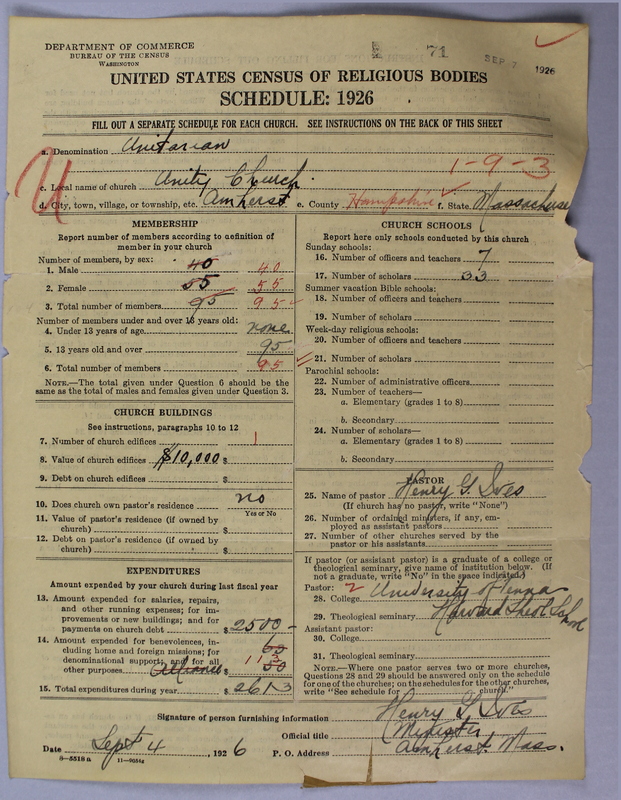 DEPARTMENT OF COMMERCE
BUREAU OF THE CENSUS
WASHINGTON
71
SEP 7 1926
UNITED STATES CENSUS OF RELIGIOUS BODIES
SCHEDULE: 1926
FILL OUT A SEPARATE SCHEDULE FOR EACH CHURCH. SEE INSTRUCTIONS ON THE BACK OF THIS SHEET
a. Denomination Unitarian
1-9-3
U
c. Local name of church Unity Church.
d. City, town, village, or township, etc. Amherst e. County Hampshire f. State Massachuse
MEMBERSHIP
Report number of members according to definition of
member in your church
Number of members, by sex:
1. Male 40 40
2. Female 55 55
3. Total number of members 95 95
Number of members under and over 13 years old:
4. Under 13 years of age none
5. 13 years old and over 95
6. Total number of members 95
NOTE.—The total given under Question 6 should be
same as the total of males and females given under Question 3.
CHURCH BUILDINGS
See instructions, paragraphs 10 to 12
7. Number of church edifices 1
8. Value of church edifices $10,000 $
9. Debt on church edifices $
10. Does church own pastor's residence no
Yes or No
11. Value of pastor's residence (if owned by
church) $
12. Debt on pastor's residence (if owned by
church) $
EXPENDITURES
Amount expended by your church during last fiscal year
13. Amount expended for salaries, repairs,
and other running expenses; for im-
provements or new buildings; and for
payments on church debt $ 2500-
14. Amount expended for benevolences, in-
cluding home and foreign missions; for
denominational support; and for all
other purposes Alliance $ 63 113 50
15. Total expenditures during year $ 2613
CHURCH SCHOOLS
Report here only schools conducted by this church
Sunday schools:
16. Number of officers and teachers 7
17. Number of scholars 33
Summer vacation Bible schools:
18. Number of officers and teachers
19. Number of scholars
Week-day religious schools:
20. Number of officers and teachers
21. Number of scholars
Parochial schools:
22. Number of administrative officers
23. Number of teachers—
a. Elementary (grades 1 to 8)
b. Secondary
24. Number of scholars—
a. Elementary (grades 1 to 8)
b. Secondary
PASTOR
25. Name of pastor Henry G. Ives
(If church has no pastor, write "None")
26. Number of ordained ministers, if any, em-
ployed as assistant pastors
27. Number of other churches served by the
pastor or his assistants
If pastor (or assistant pastor) is a graduate of a college or
theological seminary, give name of institution below. (If
not a graduate, write "No" in the space indicated.)
Pastor: 2
28. College University of Penna
29. Theological seminary Harvard Theol School
Assistant pastor:
30. College
31. Theological seminary
NOTE.—Where one pastor serves two or more churches,
Questions 28 and 29 should be answered only on the schedule
for one of the churches; on the schedules for the other churches,
write "See schedule for church."
Signature of person furnishing information Henry G. Ives
Official title Minister
Date Sept 4, 1926 P. O. Address Amherst. Mass.
8—5518 a 11—9054a